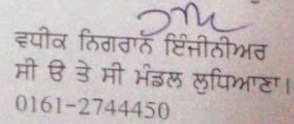 ਵਧੀਕ ਨਿਗਰਾਨ ਇੰਜੀਨੀਅਰ
ਸੀ ਓ ਤੇ ਸੀ ਮੰਡਲ ਲੁਧਿਆਣਾ।
0161-2744450